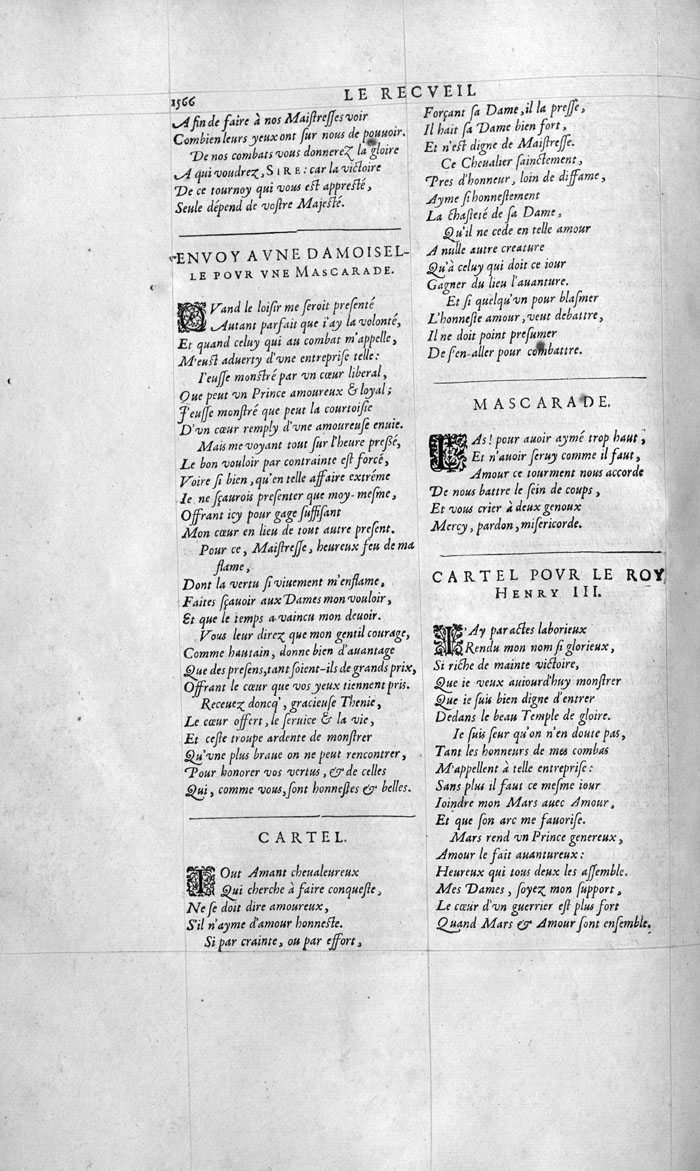 1566
LE RECVEIL
Afin de faire à nos Maistresses voir
Combien leurs yeux ont sur nous de pouuoir.
De nos combats vous donnerez la gloire
A qui voudrez, SIRE: car la victoire
De ce tournoy qui vous est appresté,
Seule dépend de vostre Majesté.
ENVOY A VNE DAMOISEL-
LE POVR VNE MASCARADE.
QVand le loisir me seroit presenté
Autant parfait que i'ay la volonté,
Et quand celuy qui au combat m'appelle,
M'eust aduerty d'vne entreprise telle:
I'eusse monstré par vn cœur liberal,
Que peut vn Prince amoureux & loyal;
J'eusse monstré que peut la courtoisie
D'vn cœur remply d'vne amoureuse enuie.
Mais me voyant tout sur l'heure pressé,
Le bon vouloir par contrainte est forcé,
Voire si bien, qu'en telle affaire extréme
Ie ne sçaurois presenter que moy-mesme,
Offrant icy pour gage suffisant
Mon cœur en lieu de tout autre present.
Pour ce, Maistresse, heureux feu de ma
flame,
Dont la vertu si viuement m'enflame,
Faites sçauoir aux Dames mon vouloir,
Et que le temps a vaincu mon deuoir.
Vous leur direz que mon gentil courage,
Comme hautain, donne bien d'auantage
Que des presens, tant soient-ils de grands prix,
Offrant le cœur que vos yeux tiennent pris.
Receuez doncq', gracieuse Thenie,
Le cœur offert, le seruice & la vie,
Et ceste troupe ardente de monstrer
Qu'vne plus braue on ne peut rencontrer,
Pour honorer vos vertus, & de celles
Qui, comme vous, sont honnestes & belles.
CARTEL.
TOut Amant cheualeureux
Qui cherche à faire conqueste,
Ne se doit dire amoureux,
S'il n'ayme d'amour honneste.
Si par crainte, ou par effort,
Forçant sa Dame, il la presse,
Il hait sa Dame bien fort,
Et n'est digne de Maistresse.
Ce Cheualier sainctement,
Pres d'honneur, loin de diffame,
Ayme si honnestement
La chasteté de sa Dame,
Qu'il ne cede en telle amour
A nulle autre creature
Qu'à celuy qui doit ce iour
Gagner du lieu l'auanture.
Et si quelqu'vn pour blasmer
L'honneste amour, veut debattre,
Il ne doit point presumer
De s'en-aller pour combattre.
MASCARADE.
LAs! pour auoir aymé trop haut,
Et n'auoir seruy comme il faut,
Amour ce tourment nous accorde
De nous battre le sein de coups,
Et vous crier à deux genoux
Mercy, pardon, misericorde.
CARTEL POVR LE ROY
HENRY III.
I'Ay par actes laborieux
Rendu mon nom si glorieux,
Si riche de mainte victoire,
Que ie veux auiourd'huy monstrer
Que ie suis bien digne d'entrer
Dedans le beau Temple de gloire.
Ie suis seur qu'on n'en doute pas,
Tant les honneurs de mes combas
M'appellent à telle entreprise:
Sans plus il faut ce mesme iour
Ioindre mon Mars auec Amour,
Et que son arc me fauorise.
Mars rend vn Prince genereux,
Amour le fait auantureux:
Heureux qui tous deux les assemble.
Mes Dames, soyez mon support,
Le cœur d'vn guerrier est plus fort
Quand Mars & Amour sont ensemble.